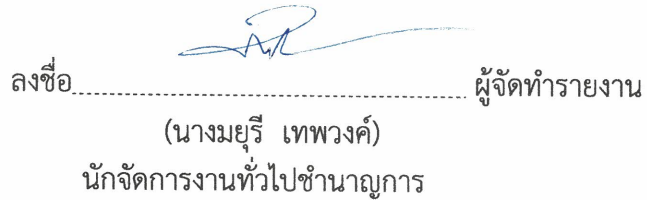 ลงชื่อ.................................................... ผู้จัดทำรายงาน
(นางมยุรี เทพวงค์)
นักจัดการงานทั่วไปชำนาญการ